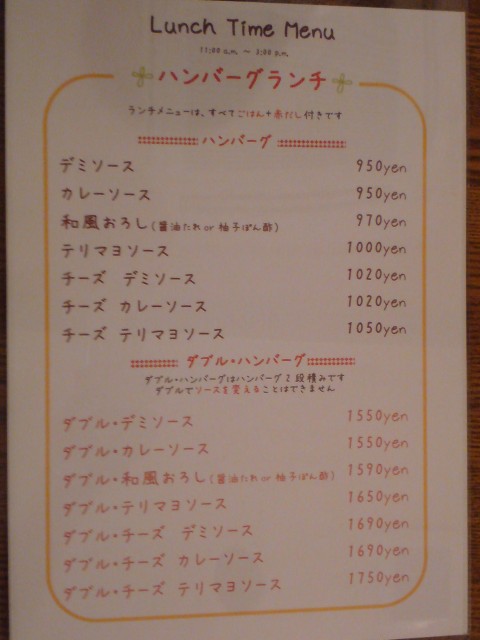 Lunch Time Menu
11:00 a.m. ～ 3:00 p.m.
ハンバーグランチ
ランチメニューは、すべてごはん+赤だし付きです
ハンバーグ
デミソース 950yen
カレーソース 950yen
和風おろし(醤油たれ or 柚子ぽん酢) 970yen
テリマヨソース 1000yen
チーズ デミソース 1020yen
チーズ カレーソース 1020yen
チーズ テリマヨソース 1050yen
ダブル・ハンバーグ
ダブル・ハンバーグはハンバーグ2段積みです
ダブルでソースを変えることはできません
ダブル・デミソース 1550yen
ダブル・カレーソース 1550yen
ダブル・和風おろし(醤油たれ or 柚子ぽん酢) 1590yen
ダブル・テリマヨソース 1650yen
ダブル・チーズ デミソース 1690yen
ダブル・チーズ カレーソース 1690yen
ダブル・チーズ テリマヨソース 1750yen